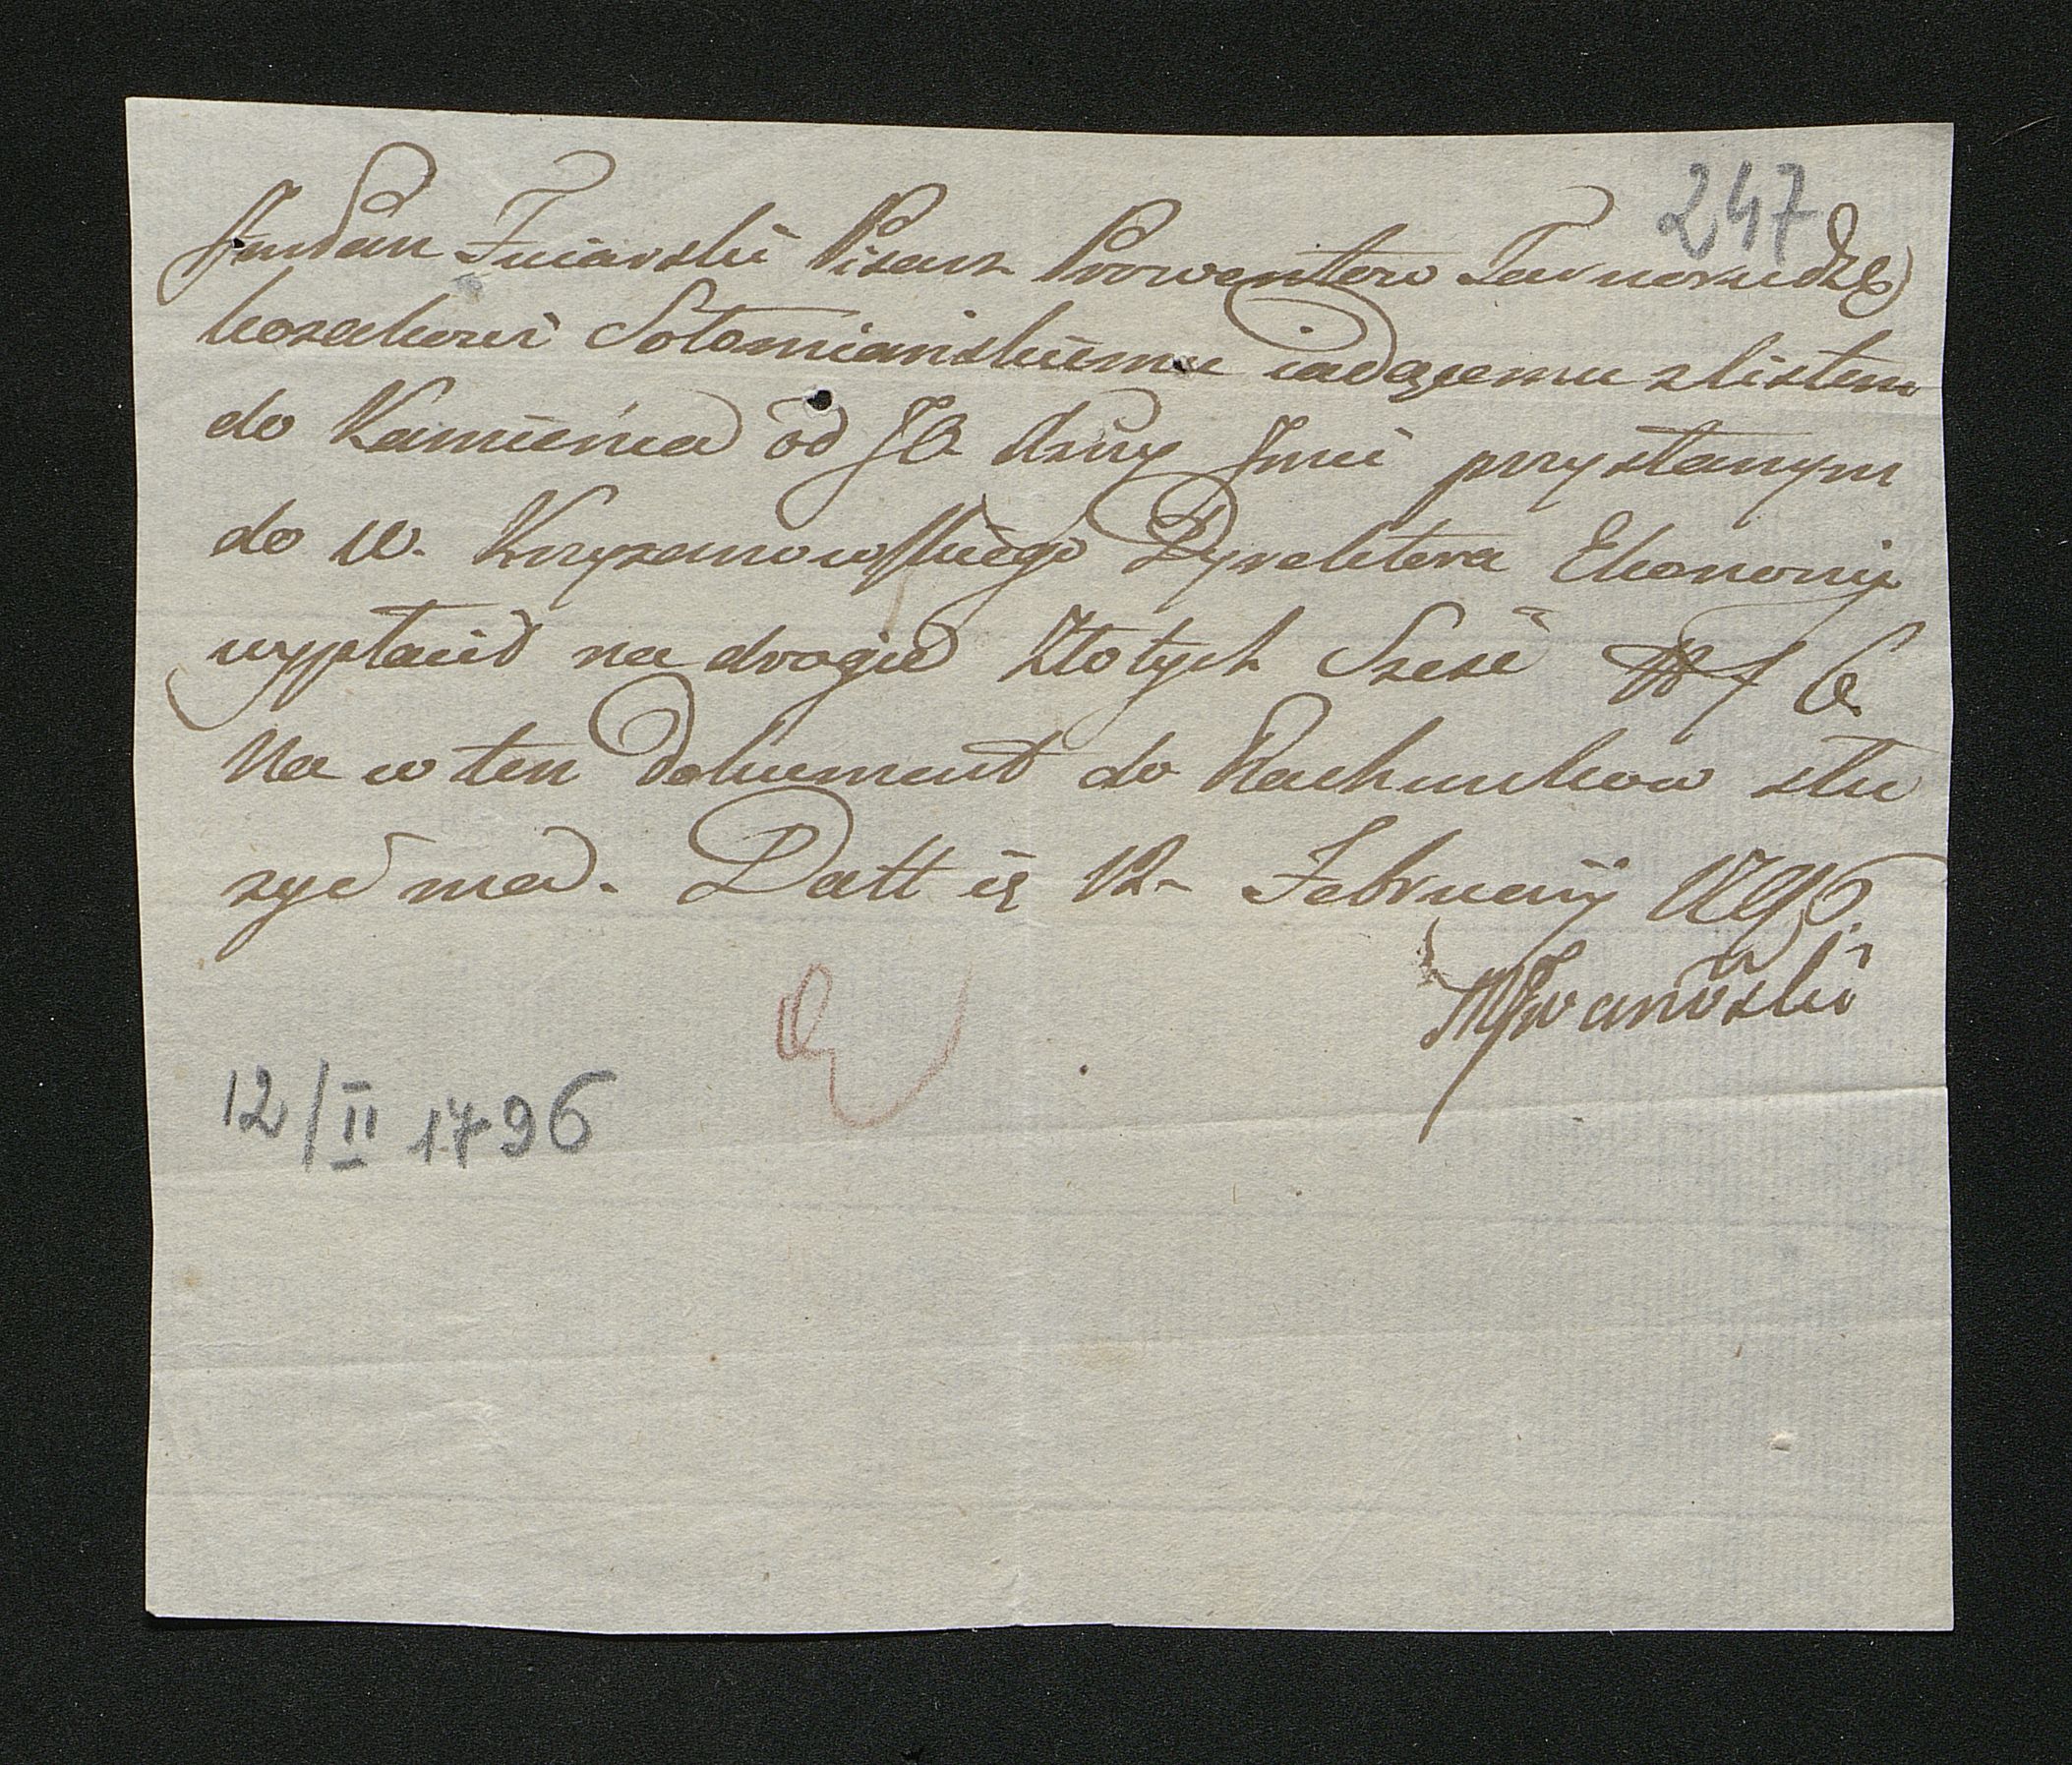 247
JmPan Fuiarski Pisarz Prowentow Tarnorudzki
kozakowi Sołomianskiemu iadącemu z listem
do Kamienca od JO Xcny Jmci przysłanym
do W. Krzyzanowskiego Dyrektora Ekonomij
wypłacić na drogie Złotych Szesc f 6
Na co ten Dokument do Rachunkow słu
zyć ma. Datt is 12 Februarij 1796.
MIwanski
12/II 1796